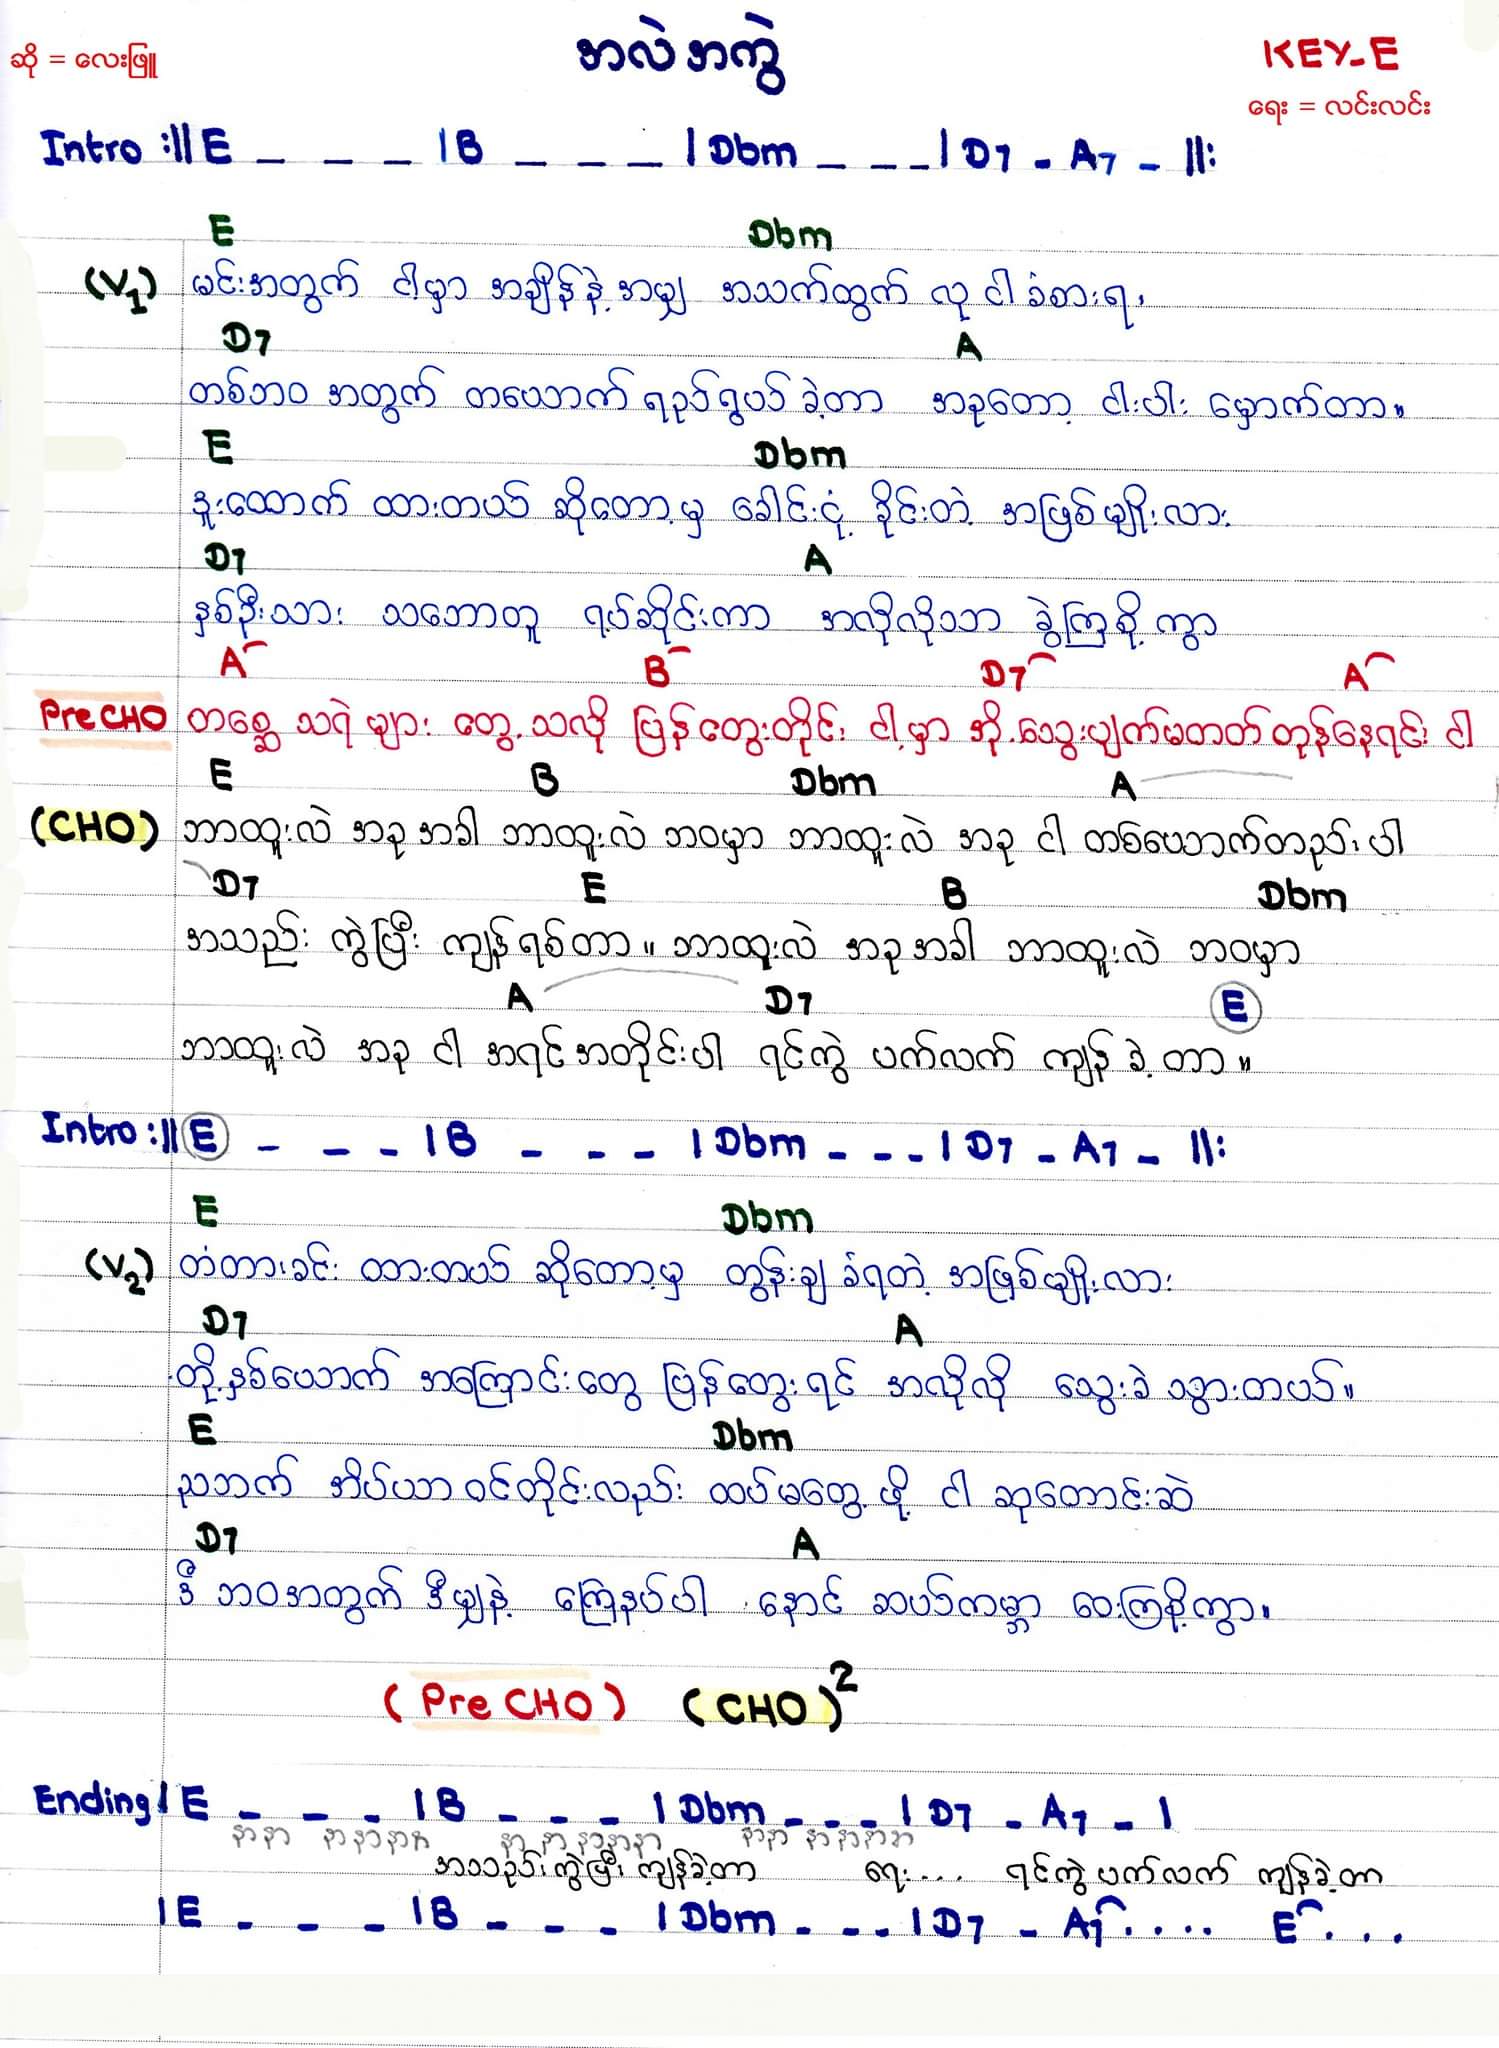 ဆို = လေးဖြူ
အလဲအကွဲ
KEY-E
ရေး = လင်းလင်း
Intro :|| E _ _ _ | B _ _ _ | Dbm _ _ _ | D7 - A7 - ||:
E Dbm
(V1) မင်းအတွက် ငါ့မှာ အချိန်နဲ့အမျှ အသက်ထွက် လု ငါ ခံစားရ၊
D7 A
တစ်ဘဝ အတွက် တယောက် ရည်ရွယ် ခဲ့တာ အခုတော့ ငါးပါး မှောက်တာ။
E Dbm
ဒူးထောက် ထားတယ် ဆိုတော့မှ ခေါင်းငုံ့ ခိုင်းတဲ့ အဖြစ်မျိုးလား
D7 A
နှစ်ဦးသား သဘောတူ ရပ်ဆိုင်းကာ အလိုလိုသာ ခွဲကြစို့ ကွာ
A B D7 A
Pre CHO တစ္ဆေ သရဲ များ တွေ့သလို ပြန်တွေးတိုင်း ငါ့မှာ အို.သွေးပျက်မတတ် တုန်နေရင်း ငါ
E B Dbm A
(CHO) ဘာထူးလဲ အခု အခါ ဘာထူးလဲ ဘဝမှာ ဘာထူးလဲ အခု ငါ တစ်ယောက်တည်းပါ
D7 E B Dbm
အသည်း ကွဲပြီး ကျန်ရစ်တာ။ ဘာထူးလဲ အခု အခါ ဘာထူးလဲ ဘဝမှာ
A D7 E
ဘာထူးလဲ အခု ငါ အရင်အတိုင်းပါ ရင်ကွဲ ပက်လက် ကျန်ခဲ့တာ။
Intro :|| E _ _ _ | B _ _ _ | Dbm _ _ _ | D7 - A7 - ||:
E Dbm
(V2) တံတားခင်း ထားတယ် ဆိုတော့မှ တွန်းချ ခံရတဲ့ အဖြစ်မျိုးလား
D7 A
တို့နှစ်ယောက် အကြောင်းတွေ ပြန်တွေးရင် အလိုလို သွေးခဲ သွားတယ်။
E Dbm
ညဘက် အိပ်ယာ ဝင်တိုင်းလည်း ထပ်မတွေ့ဖို့ ငါ ဆုတောင်းဆဲ
D7 A
ဒီ ဘဝအတွက် ဒီမျှနဲ့ ကြေနပ်ပါ နောင် ဆယ်ကမ္ဘာ ဝေးကြစို့ကွာ။
(Pre CHO) (CHO)2
Ending | E _ _ _ | B _ _ _ | Dbm _ _ _ | D7 - A7 - |
နာနာ နာနာနာနာ နာ နာ နာနာနာ နာနာ နာနာနာနာ
အသည်းကွဲပြီး ကျန်ခဲ့တာ ရေး.... ရင်ကွဲ ပက်လက် ကျန်ခဲ့တာ
| E _ _ _ | B _ _ _ | Dbm _ _ _ | D7 - A7 .... E ...